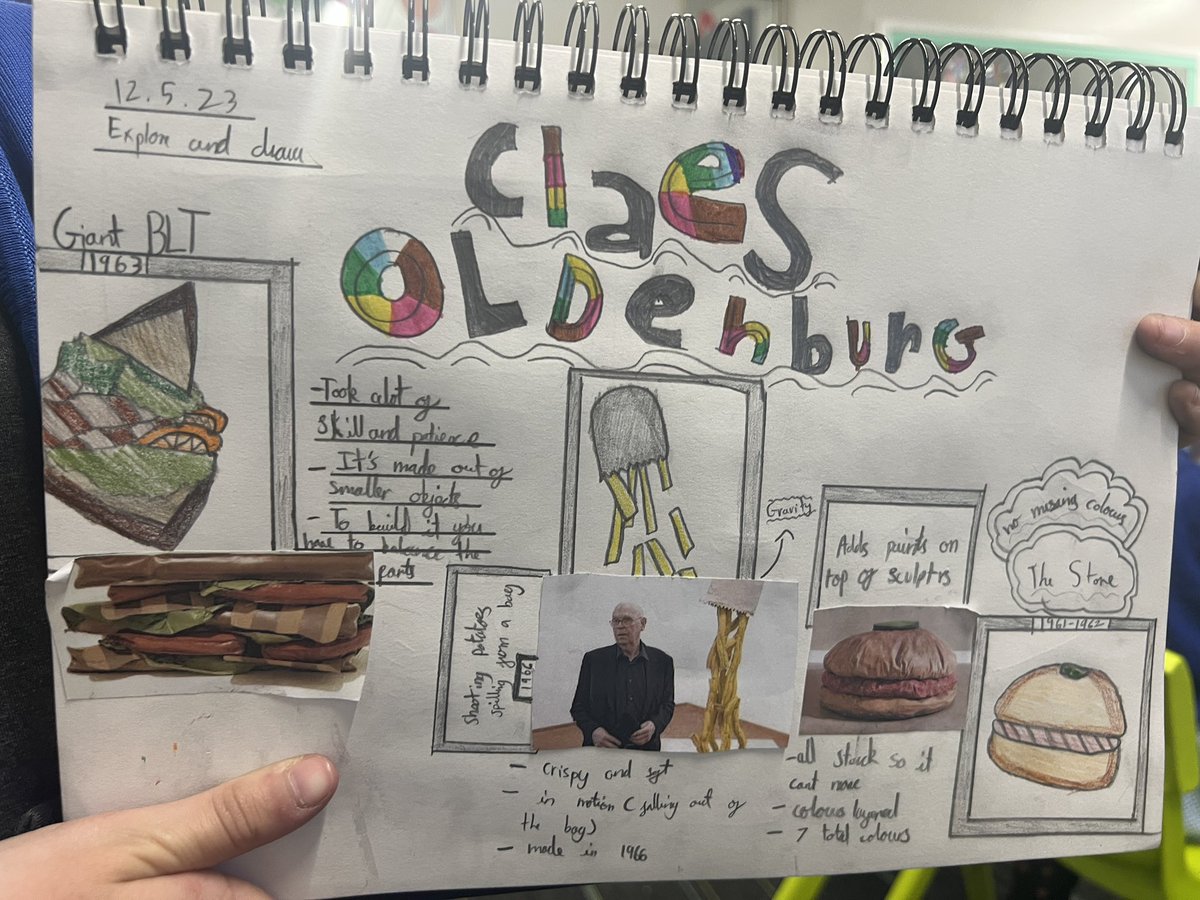 12.5.23
Explore and draw
Claes
OLDenburG
Giant BLT
1963
-Took alot of
skill and patience
- It's made out of
smaller objects
- To build it you
have to balance the
parts
Gravity
Shoesting potatoes
spilling from a bag
1966
- crispy and
- in motion (falling out of
the bag)
- made in 1966
Adds paints on
top of sculptrs
-all stuck so it
cant move
- colours layered
- 7 total colours
no missing colours
The Store
1961-1962